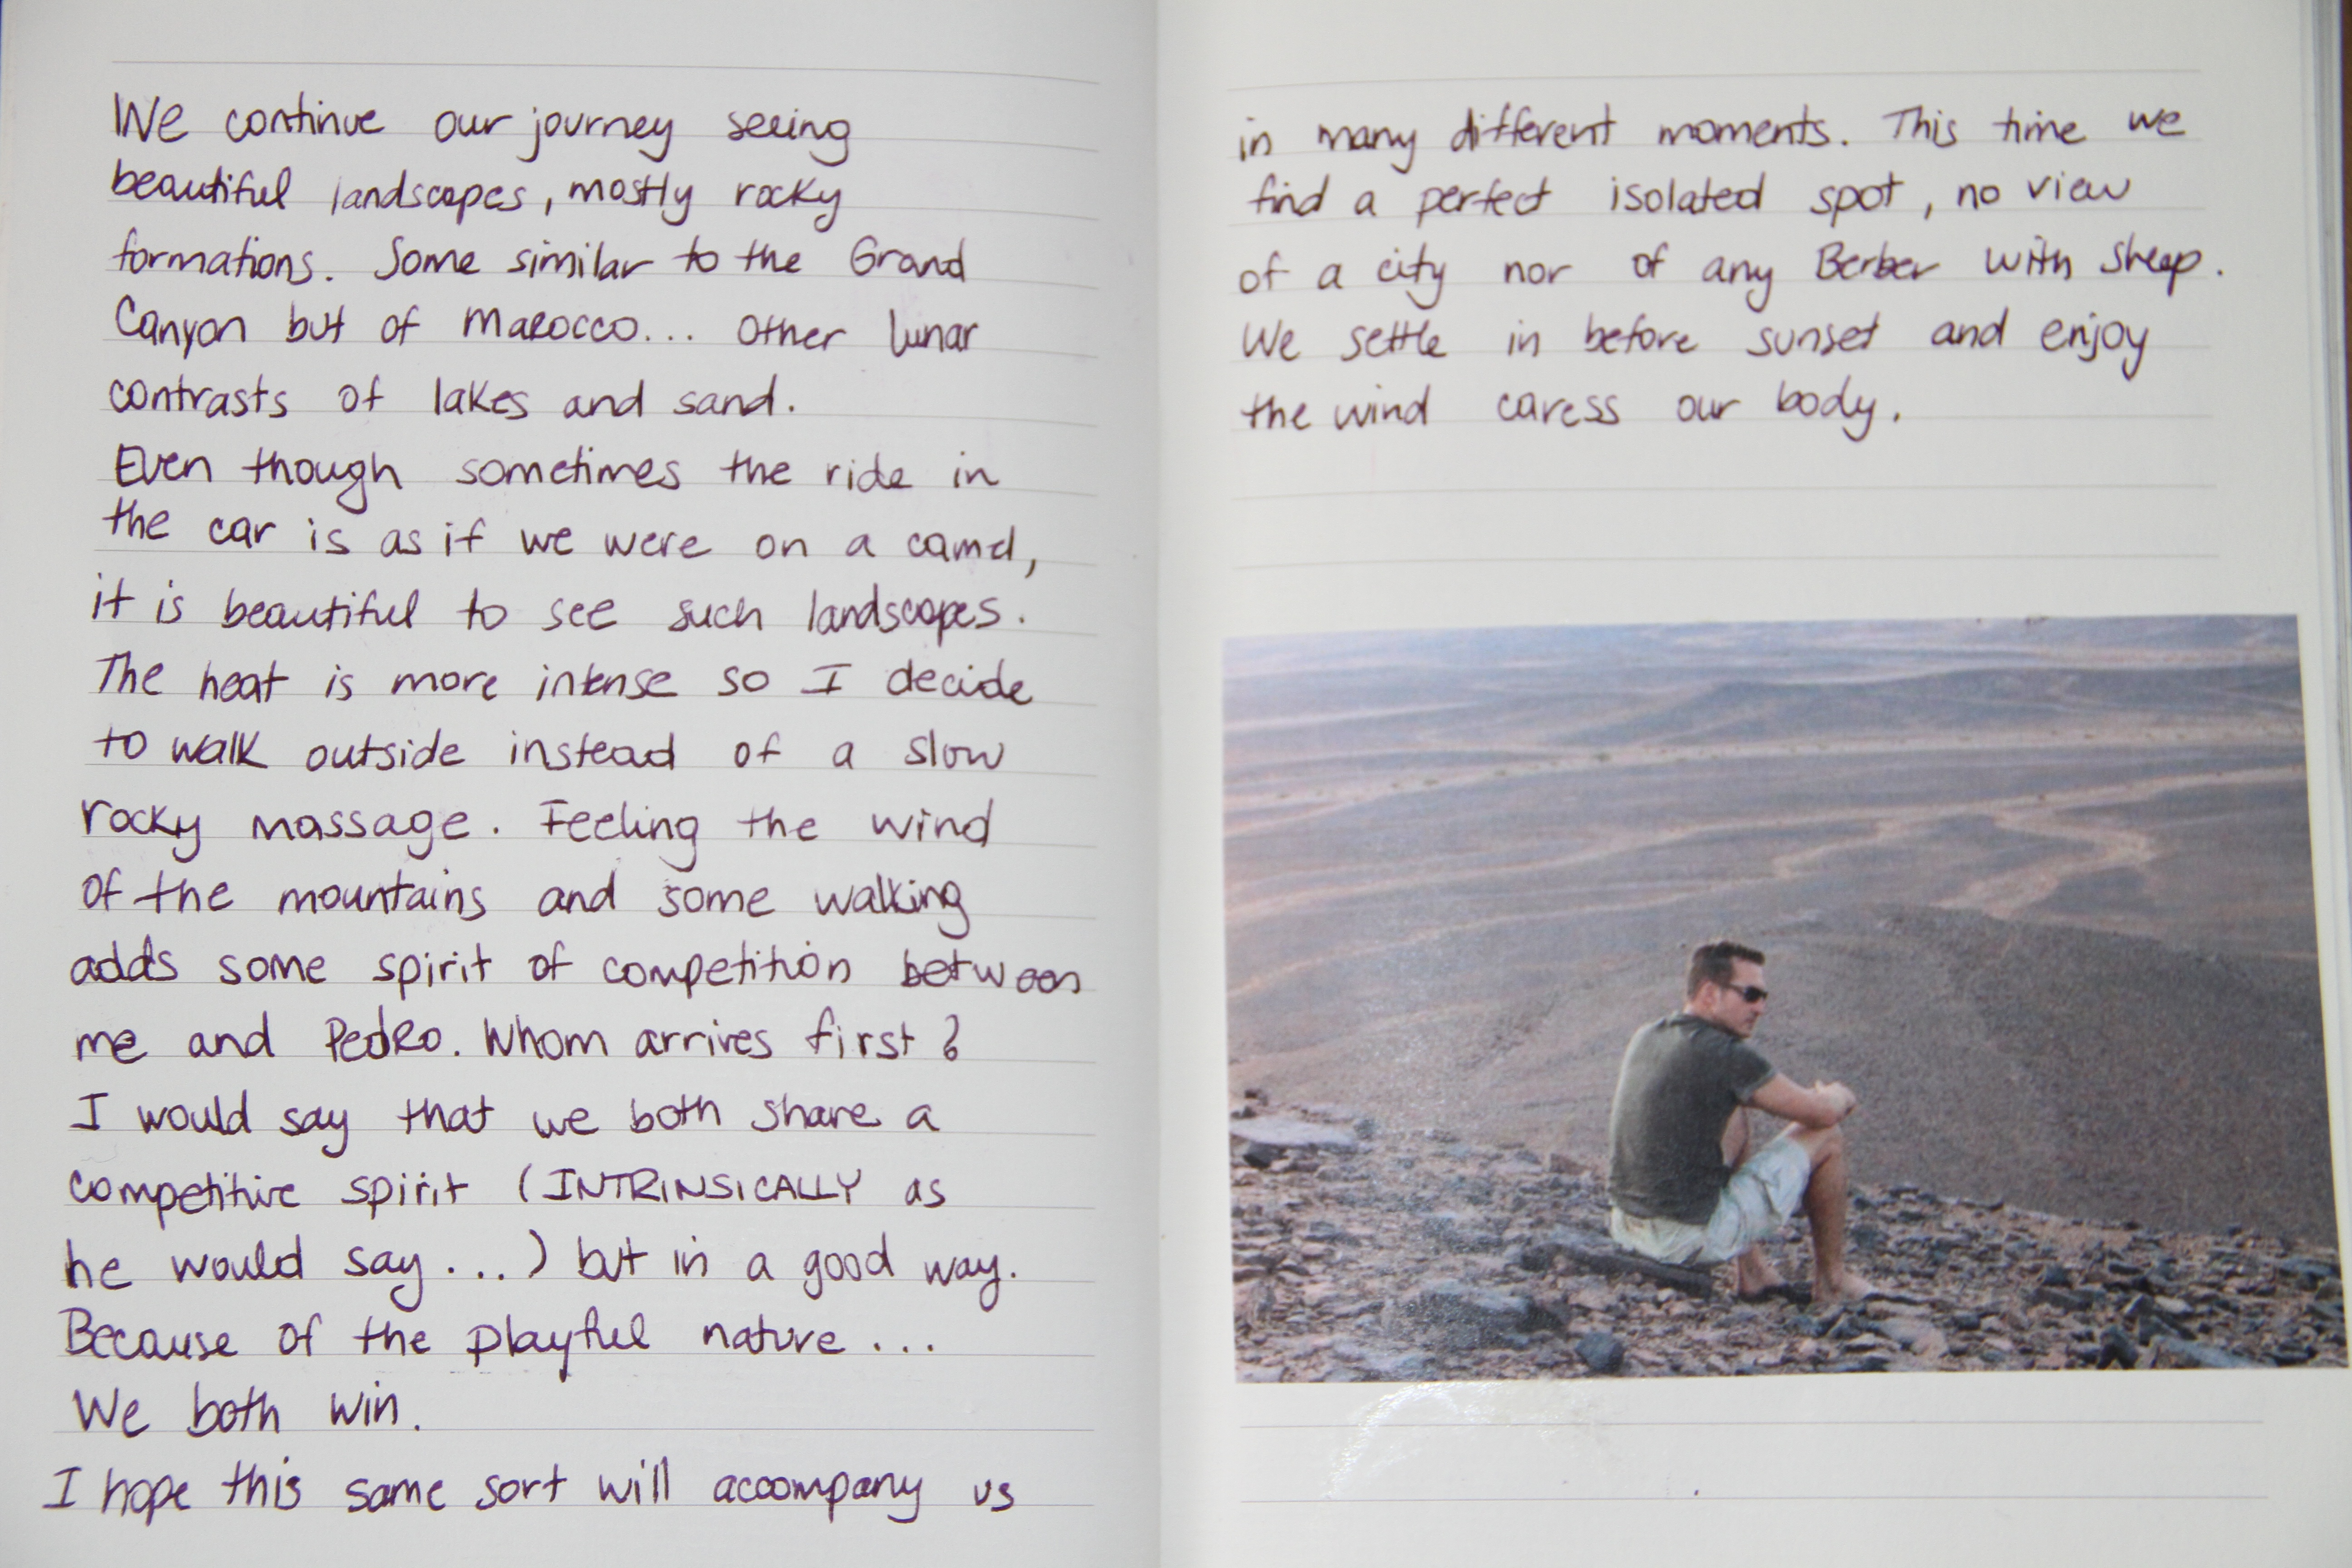 We continue our journey seeing
beautiful landscapes, mostly rocky
formations. Some similar to the Grand
Canyon but of Marocco... Other lunar
contrasts of lakes and sand.
Even though sometimes the ride in
the car is as if we were on a camel,
it is beautiful to see such landscapes.
The heat is more intense so I decide
to walk outside instead of a slow
rocky massage. Feeling the wind
of the mountains and some walking
adds some spirit of competition between
me and Pedro. Whom arrives first?
I would say that we both share a
competitive spirit (INTRINSICALLY as
he would say...) but in a good way.
Because of the playful nature...
We both win.
I hope this same sort will accompany us
in many different moments. This time we
find a perfect isolated spot, no view
of a city nor of any Berber with sheep.
We settle in before sunset and enjoy
the wind caress our body.